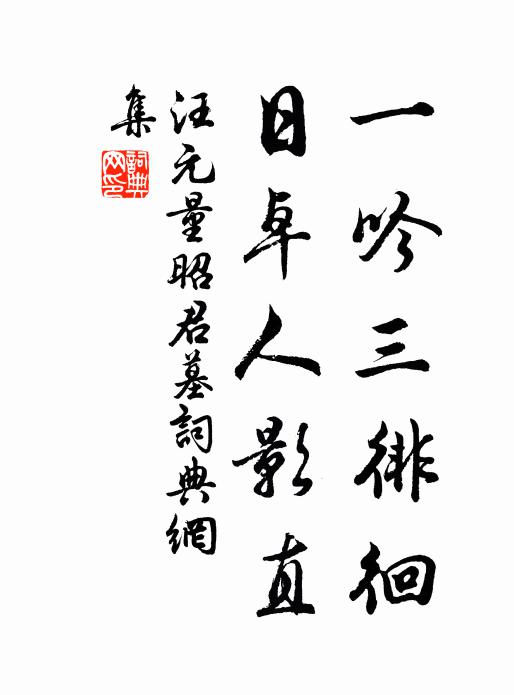 一吟三徘徊
日卓人影直
汪元量昭君墓詞典網
集
詞典
网印